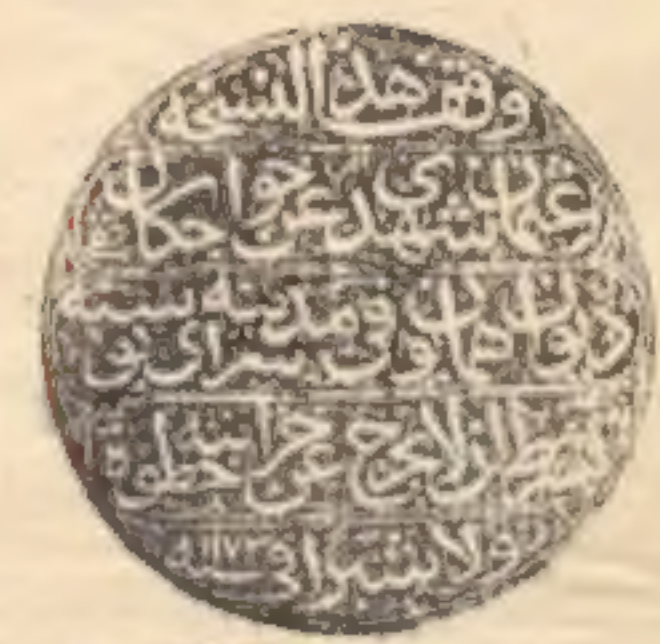 وقف هذا النسخه
عثمان شهدى عن خواجكان
ديوان همايون فى مدينة سراى بوسنه
بشرط ان لا يخرج عن خزانته خطوة
ولا شبرا فى سنه ١١٧٣